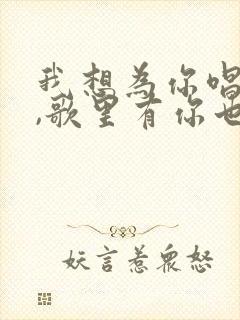 我想为你唱
,歌里有你也
妖言惹众怒